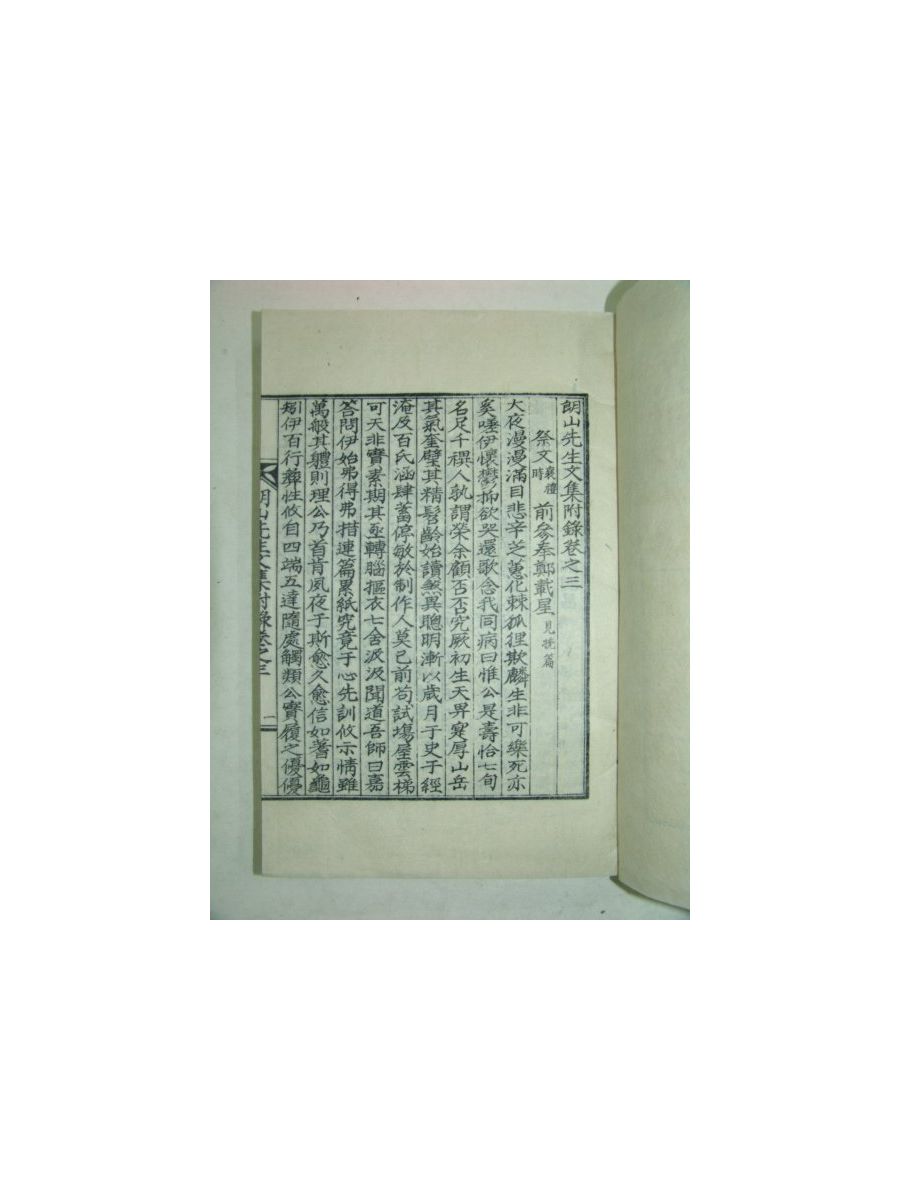 朗山先生文集附錄卷之三
祭文 襄禮時 前參奉鄭載星 見挽篇
大夜漫漫滿目悲辛之蕙化棘狐狸欺麟生非可樂死亦
奚唾伊懷鬱抑欲哭還歌念我同病曰惟公是壽恰七旬
名足千禩人孰謂榮余顧否否究厥初生天畀寔厚山岳
其氣奎璧其精髫齡始讀煞異聰明漸以歲月于史于經
淹及百氏涵肆蓄停敏於制作人莫己前苟試塲屋雲梯
可天非實素期其亟轉腦摳衣七舍汲汲聞道吾師曰嘉
答問伊始弗得弗措連篇累紙究竟于心先訓攸示情雖
萬般其體則理公乃首肯夙夜于斯愈久愈信如蓍如龜
矧伊百行彝性攸自四端五達隨處觸類公實履之優優
朗山先生文集附錄卷之三
一